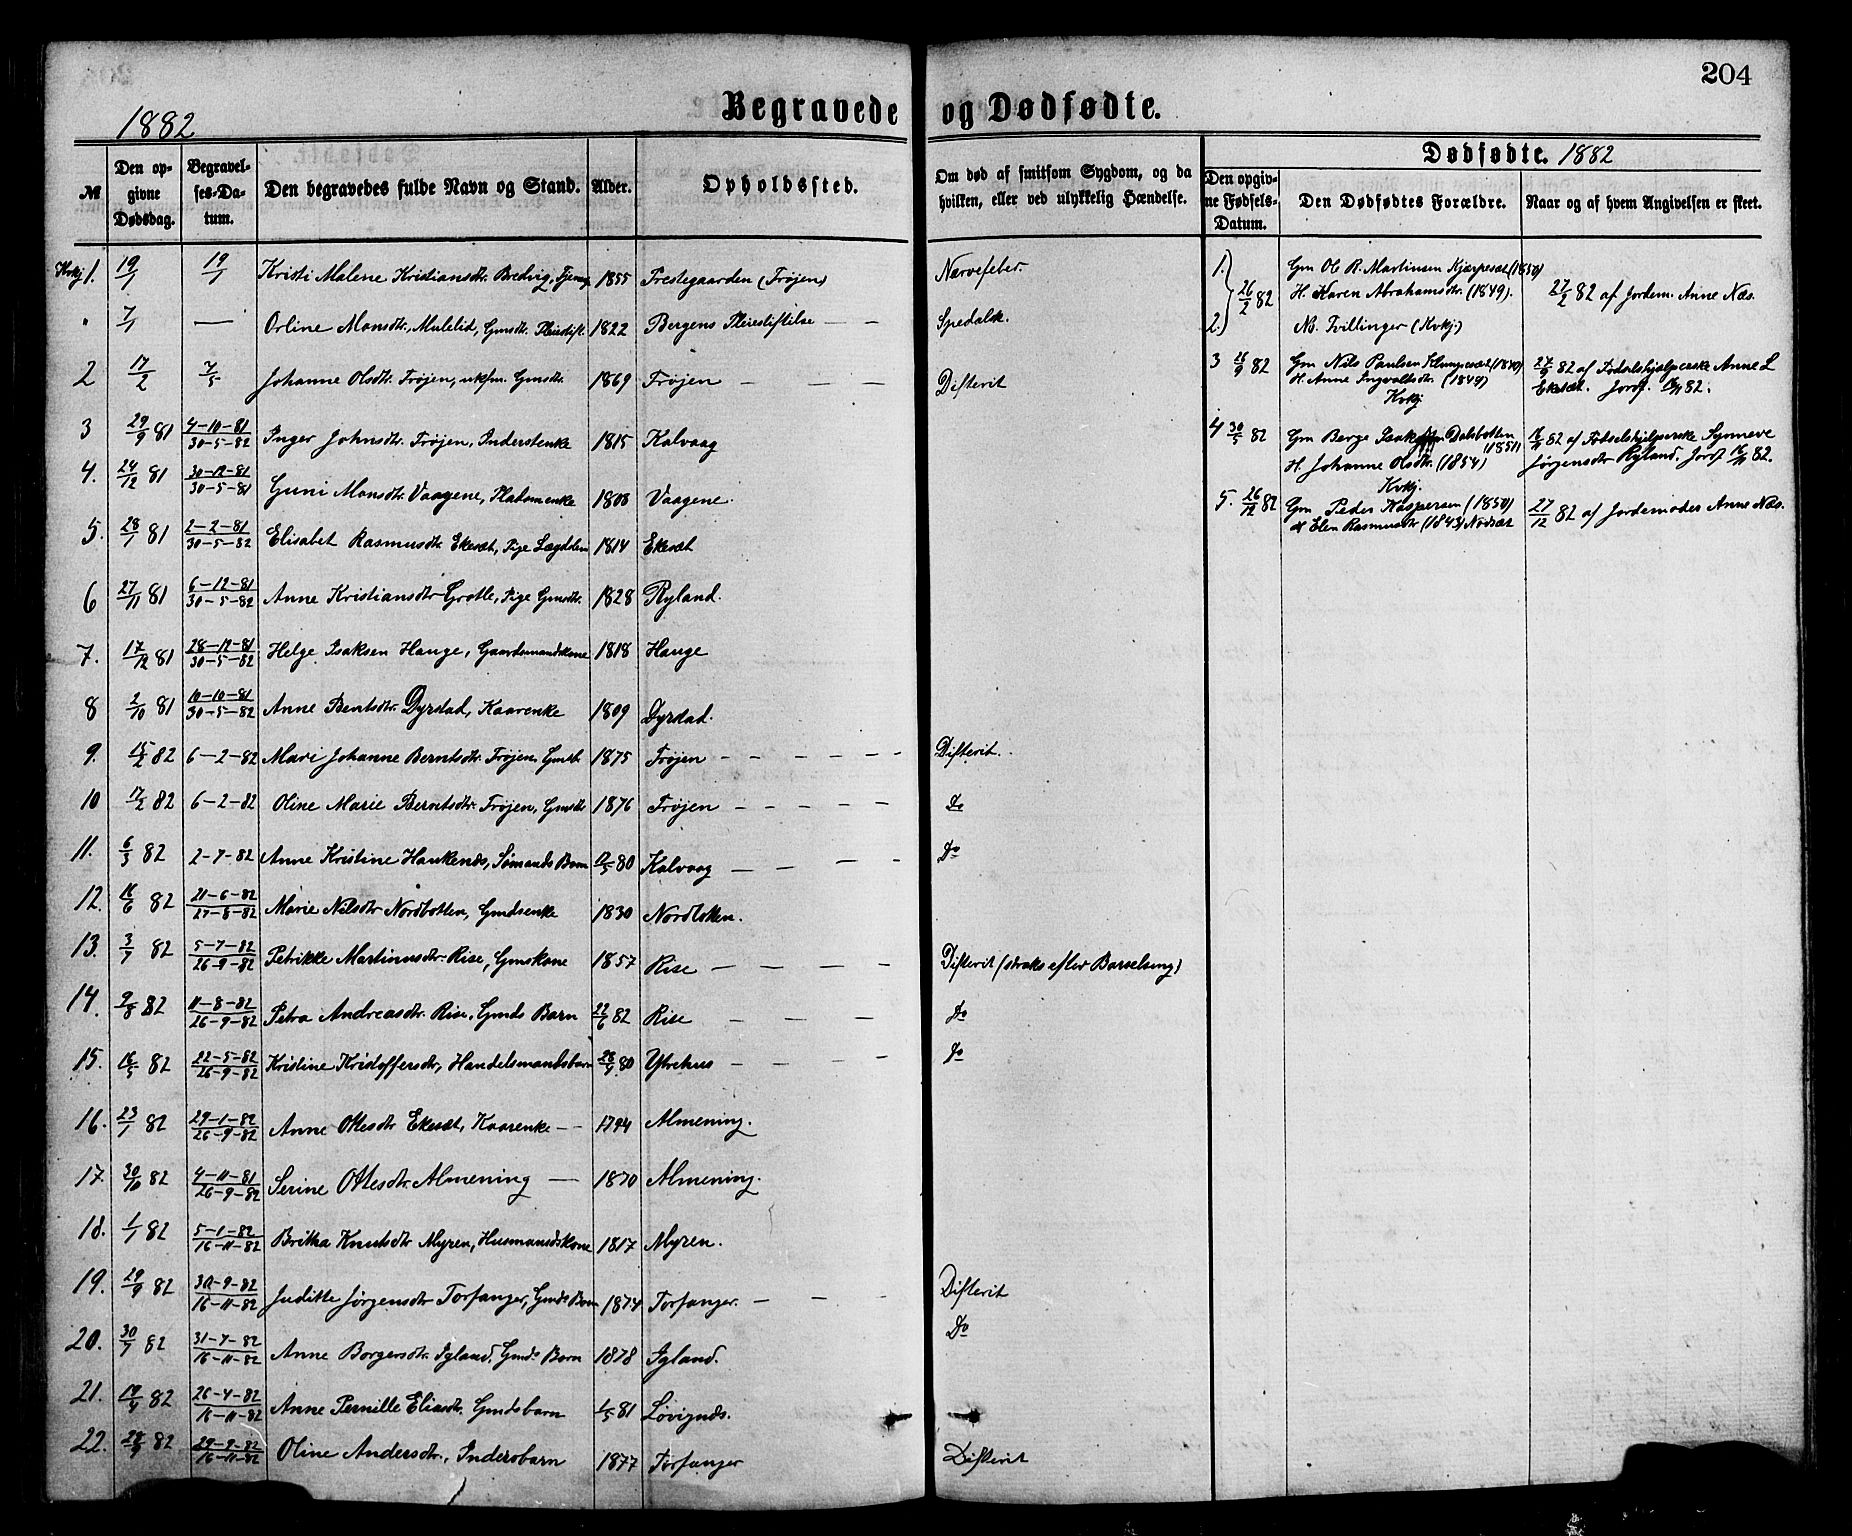 204
Begravede og Dødfødte.
1882
Dødfødte. 1882
№
Den opgivne Dødsdag.
Begravelses-Datum.
Den begravedes fulde Navn og Stand.
Alder.
Opholdssted.
Om død af smitsom Sygdom, og da hvilken, eller ved ulykkelig Hændelse.
Den opgivne Fødsels-Datum.
Den Dødfødtes Forældre.
Naar og af hvem Angivelsen er skeet.
1. 19/1 19/1 Kristi Malene Kristiansdtr. Bredvig, 1855 Prestegaarden (Frøjen) Nervefeber.
" 7/1 — Orline Monsdtr. Mulelid, Gmsdtr. 1822 Bergens Pleiestiftelse — — Spedalsk.
2 17/2 7/5 Johanne Olsdtr. Frøjen, ukfm. Gmsdtr. 1869 Frøjen — — — Difterit
3 29/9 81 4-10-81 30-5-82 Inger Johnsdtr. Frøjen, Inderstenke 1815 Kalvaag
4. 24/12 81 30-12-81 30-5-81 Guni Monsdtr. Vaagene, 1808 Vaagene.
5. 28/1 81 2-2-81 30-5-82 Elisabet Rasmusdtr. Ekesæt, Pige Lægdslem 1814 Ekesæt
6 27/11 81 6-12-81 30-5-82 Anne Kristiansdtr Grotle, Pige Gmsdtr. 1828 Ryland.
7. 17/12 81 28-12-81 30-5-82 Helge Isaksen Hauge, Gaardmandskone 1818 Hauge
8 2/10 81 10-10-81 30-5-82 Anne Bentsdtr. Dyrstad, Kaarenke 1809 Dyrstad.
9. 15/2 82 6-2-82 Mari Johanne Berntsdtr. Frøjen, 1875 Frøjen — — — — — Difterit.
10 17/2 82 6-2-82 Oline Marie Berntsdtr. Frøjen, Gmsdtr 1876 Frøjen — — — — — Do
11. 6/3 82 2-7-82 Anne Kristine Haukends, Sømands Barn 80 Kalvaag — — — — Do
12. 16/6 82 21-6-82 27-8-82 Marie Nilsdtr Nordbotten, Gmdsenke 1830 Nordbotten.
13. 3/7 82 5-7-82 26-9-82 Petrikke Martinusdtr. Rise, Gmskone 1857 Rise — — — — Difterit (straks efter Barselseng)
14. 9/8 82 11-8-82 26-9-82 Petra Andreasdtr. Rise, Gmds Barn 22/6 82 Rise — — — — Do
15. 16/5 82 22-5-82 26-9-82 Kristine Kristoffersdtr, Handelsmandsbarn 80 Ytrehus — — — — Do
16. 23/1 82 29-1-82 26-9-82 Anne Ottesdtr Ekesæt, Kaarenke — 1794 Almening.
17. 30/10 82 4-11-81 26-9-82 Serine Ottesdtr. Almening — 1870 Almening.
18. 1/1 82 5-1-82 16-11-82 Britha Knutsdtr Myren, Husmandskone 1817 Myren.
19. 29/9 82 30-9-82 16-11-82 Juditte Jørgensdtr Torfanger, Gmds Barn 1874 Torfanger. — — — Difterit
20. 30/7 82 31-7-82 16-11-82 Anne Borgersdtr. Igland, Gmds Barn 1878 Igland. Do
21. 19/4 82 26-4-82 16-11-82 Anne Pernille Eliasdtr. Gmdsbarn 1/5 81 Løvignds.
22. 82 29-9-82 16-11-82 Oline Andersdtr. Indersbarn 1877 Torfanger Difterit
1. 2. 26/2 82 Gm Ol R. Martinsen Kjærpesæt (1850)
H. Karen Abrahamsdtr. (1849). 27/2 82 af Jordem. Anne Næs.
NB. Tvillinger (Kvkj.)
3 26/9 82 Gm Nils Paulsen (1840) 27/9 82 af Fødselshjelperske Anne L
H. Anne Ingvaltsdtr. (1849) Ekesæt. Jordf. 82.
Kvkj.
4 30/5 82 Gm Berge Isaksen Dalsbotten (1851) 82 af Fødselshjelperske Synneve
H. Johanne Olsdtr. (1854) Jørgensdtr Ryland. Jordf. 16/11 82.
Kvkj.
5. 26/12 82 Gm Peder Kaspersen (1850) 27/12 82 af Jordemoder Anne Næs.
H Elen Rasmusdtr (1843) Nødsæt